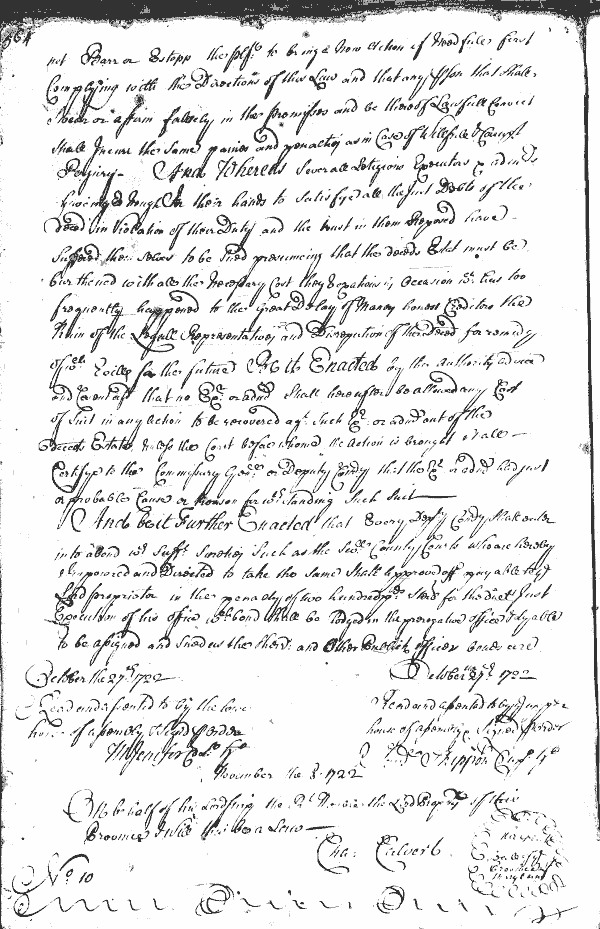 564
not Barr or Estopp the plf. to bring a New Action if needfull first
Complying with the Directions of this Law and that any pson that shall
Swear or affirm falsely in the premisses and be thereof Lawfull Convict
Shall Incurr the Same paines and penaltys as in Case of Willfull & Corrupt
Perjury - And Whereas Severall Religious Executors or admrs
haveing Enough In their hands to Satisfye all the Just Debts of the
deced in Violation of their Duty and the trust in them Reposed have
Suffered themselves to be Sued presumeing that the deceds Estate must be
burthened with all the Necessary Cost they Occasion wch has too
frequently happened to the Great Delay of Many honest Creditors the
Ruin of the Legall Representatives and Disreputation of the deced for remedy
of wch Evills for the future Be it Enacted by the authority advice
and Consent afd that no Exr or admr Shall hereafter be allowed any Cost
of Suit in any Action to be recovered agt Such Exr or admr out of the
deceds Estate, unless the Court before whome the Action is brought shall
Certifye to the Commissary Genll or Deputy Comry that the Exr or admr had just
or probable Cause or Reason for wthstanding Such Suit
And be it Further Enacted that Every Depty Comry Shall enter
into a bond wth Sufft Sureties Such as the Sevll County Courts who are hereby
Impowered and Directed to take the same Shall approve off payable to the
Lord Proprietor in the penalty of two hundred pds Sterl for the due & Just
Execution of his office wch bond shall be lodged in the prerogative office & lyable
to be assigned and Sued as the Sherrs and Other Publick officers bonds are
October the 27th 1722
Read and assented to by the lower
house of assembly & Signd p order
M Jenifer Clk lo ho
October 27th 1722
Read and assented to by the upper
house of assembly Signed p order
Clk up ho
November the 3d 1722
On behalf of his Lordship the Rt Honble the Lord Propry of this
Province I will this be a Law
Cha: Calvert
No 10